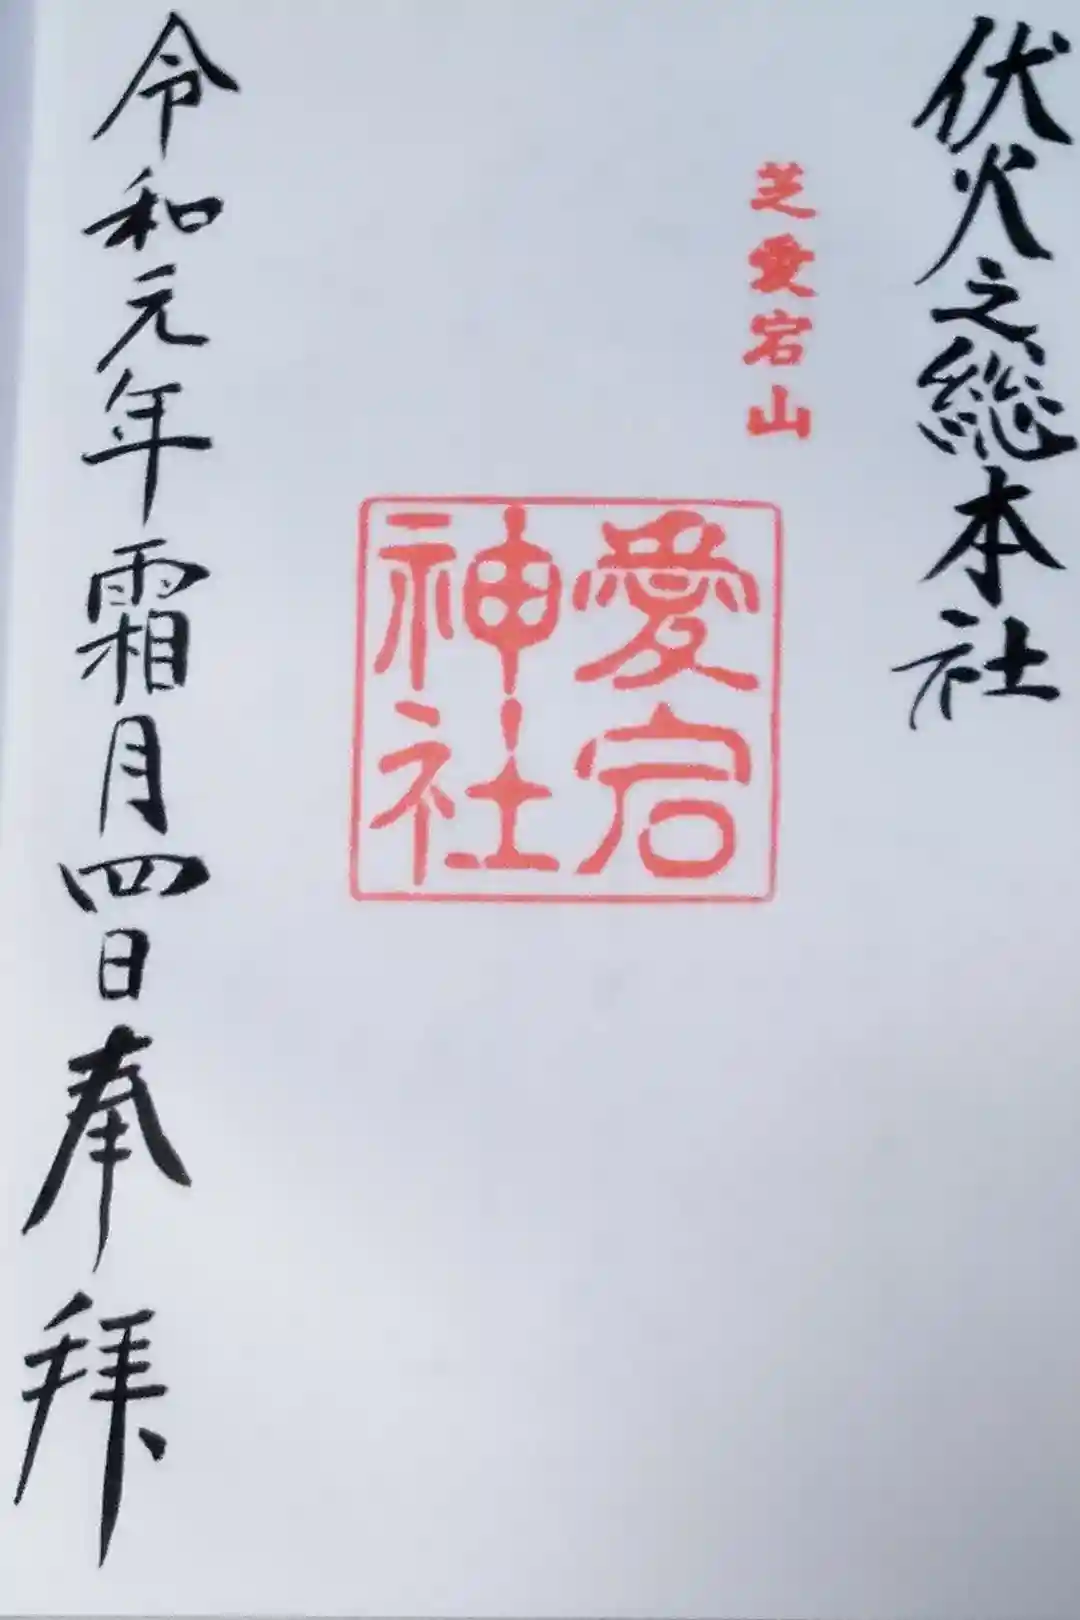 伏火之総本社
芝愛宕山
愛宕
神社
令和元年霜月四日奉拝